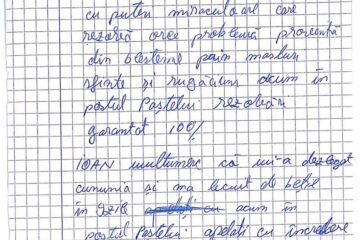 cu puteri miraculoase care
rezolvă orce problemă provenită
din blesteme prin masluri
sfinte și rugăciuni acum în
postul Paștelui rezolvări
garantat 100%
IOAN multumesc că mi-a dezlegat
cununia și ma lecuit de beție
în 9 zile acum în
postul Paștelui: apelați cu încredere